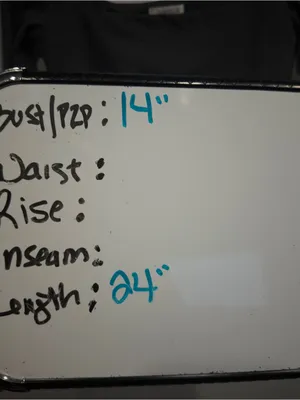 Bust/P2P: 14"
Waist:
Rise:
Inseam:
Length: 24"